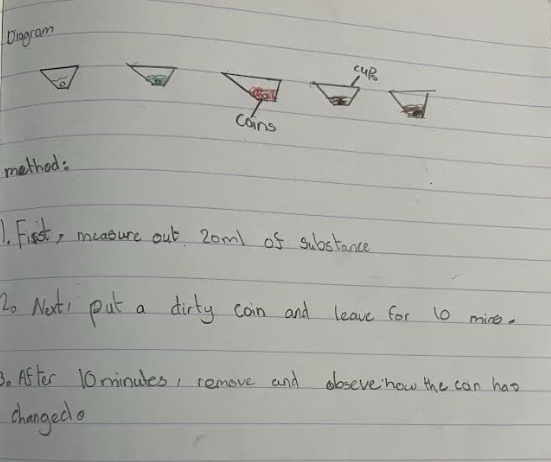 Diagram
cups
Coins
method:
1. First, measure out 20ml of substance
2. Next, put a dirty coin and leave for 10 mins.
3. After 10 minutes, remove and obseve how the coin has
changed.